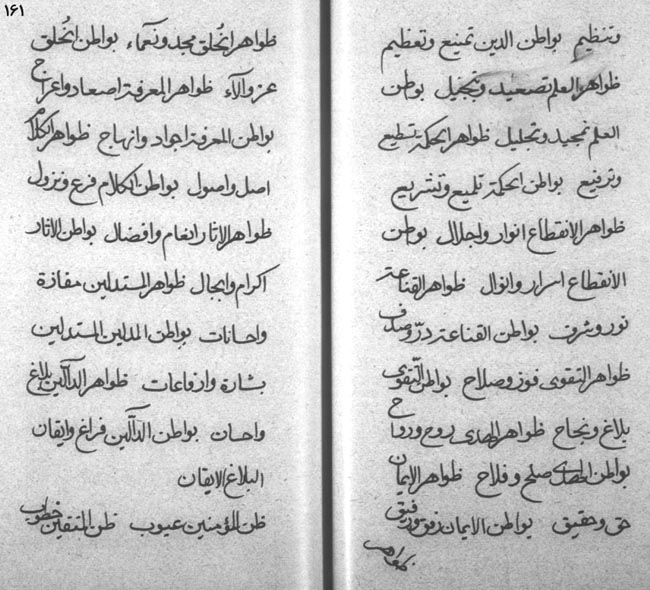 وتنظيم بواطن الدين تمنيع وتعظيم
ظواهر العلم تصعيد وتبجيل بوطن
العلم تمجيد وتجليل ظواهر الحكمة تسطيع
وترفيع بواطن الحكمة تلميع وتشريع
ظواهر الانقطاع انوار واجلال بوطن
الانقطاع اسرار وانوال ظواهر القناعة
نور وشرف بواطن القناعة درّ وصدف
ظواهر التقوى فوز وصلاح بواطن التقوى
بلاغ ونجاح ظواهر الهدى روح ورواح
بواطن الهدى صلح وفلاح ظواهر الايمان
حق وحقيق بواطن الايمان رفق ورفيق
١٦١
ظواهر الخلق مجد ونعماء بواطن الخلق
عز وآلاء ظواهر المعرفة اصعاد واعراج
بواطن المعرفة اجواد وانهاج ظواهر الكلام
اصل واصول بواطن الكلام فرع ونزول
ظواهر الاثار انغام وافضال بواطن الاثار
اكرام وايجال ظواهر المستدلين مفازة
واحانات بواطن المدلين المستدلين
بشارة وارفاعات ظواهر الدآلّين بلاغ
واحسان بواطن الدآلّين فراغ وايقان
البلاغ الايقان
ظن المؤمنين عيوب ظن المتقين خطوب